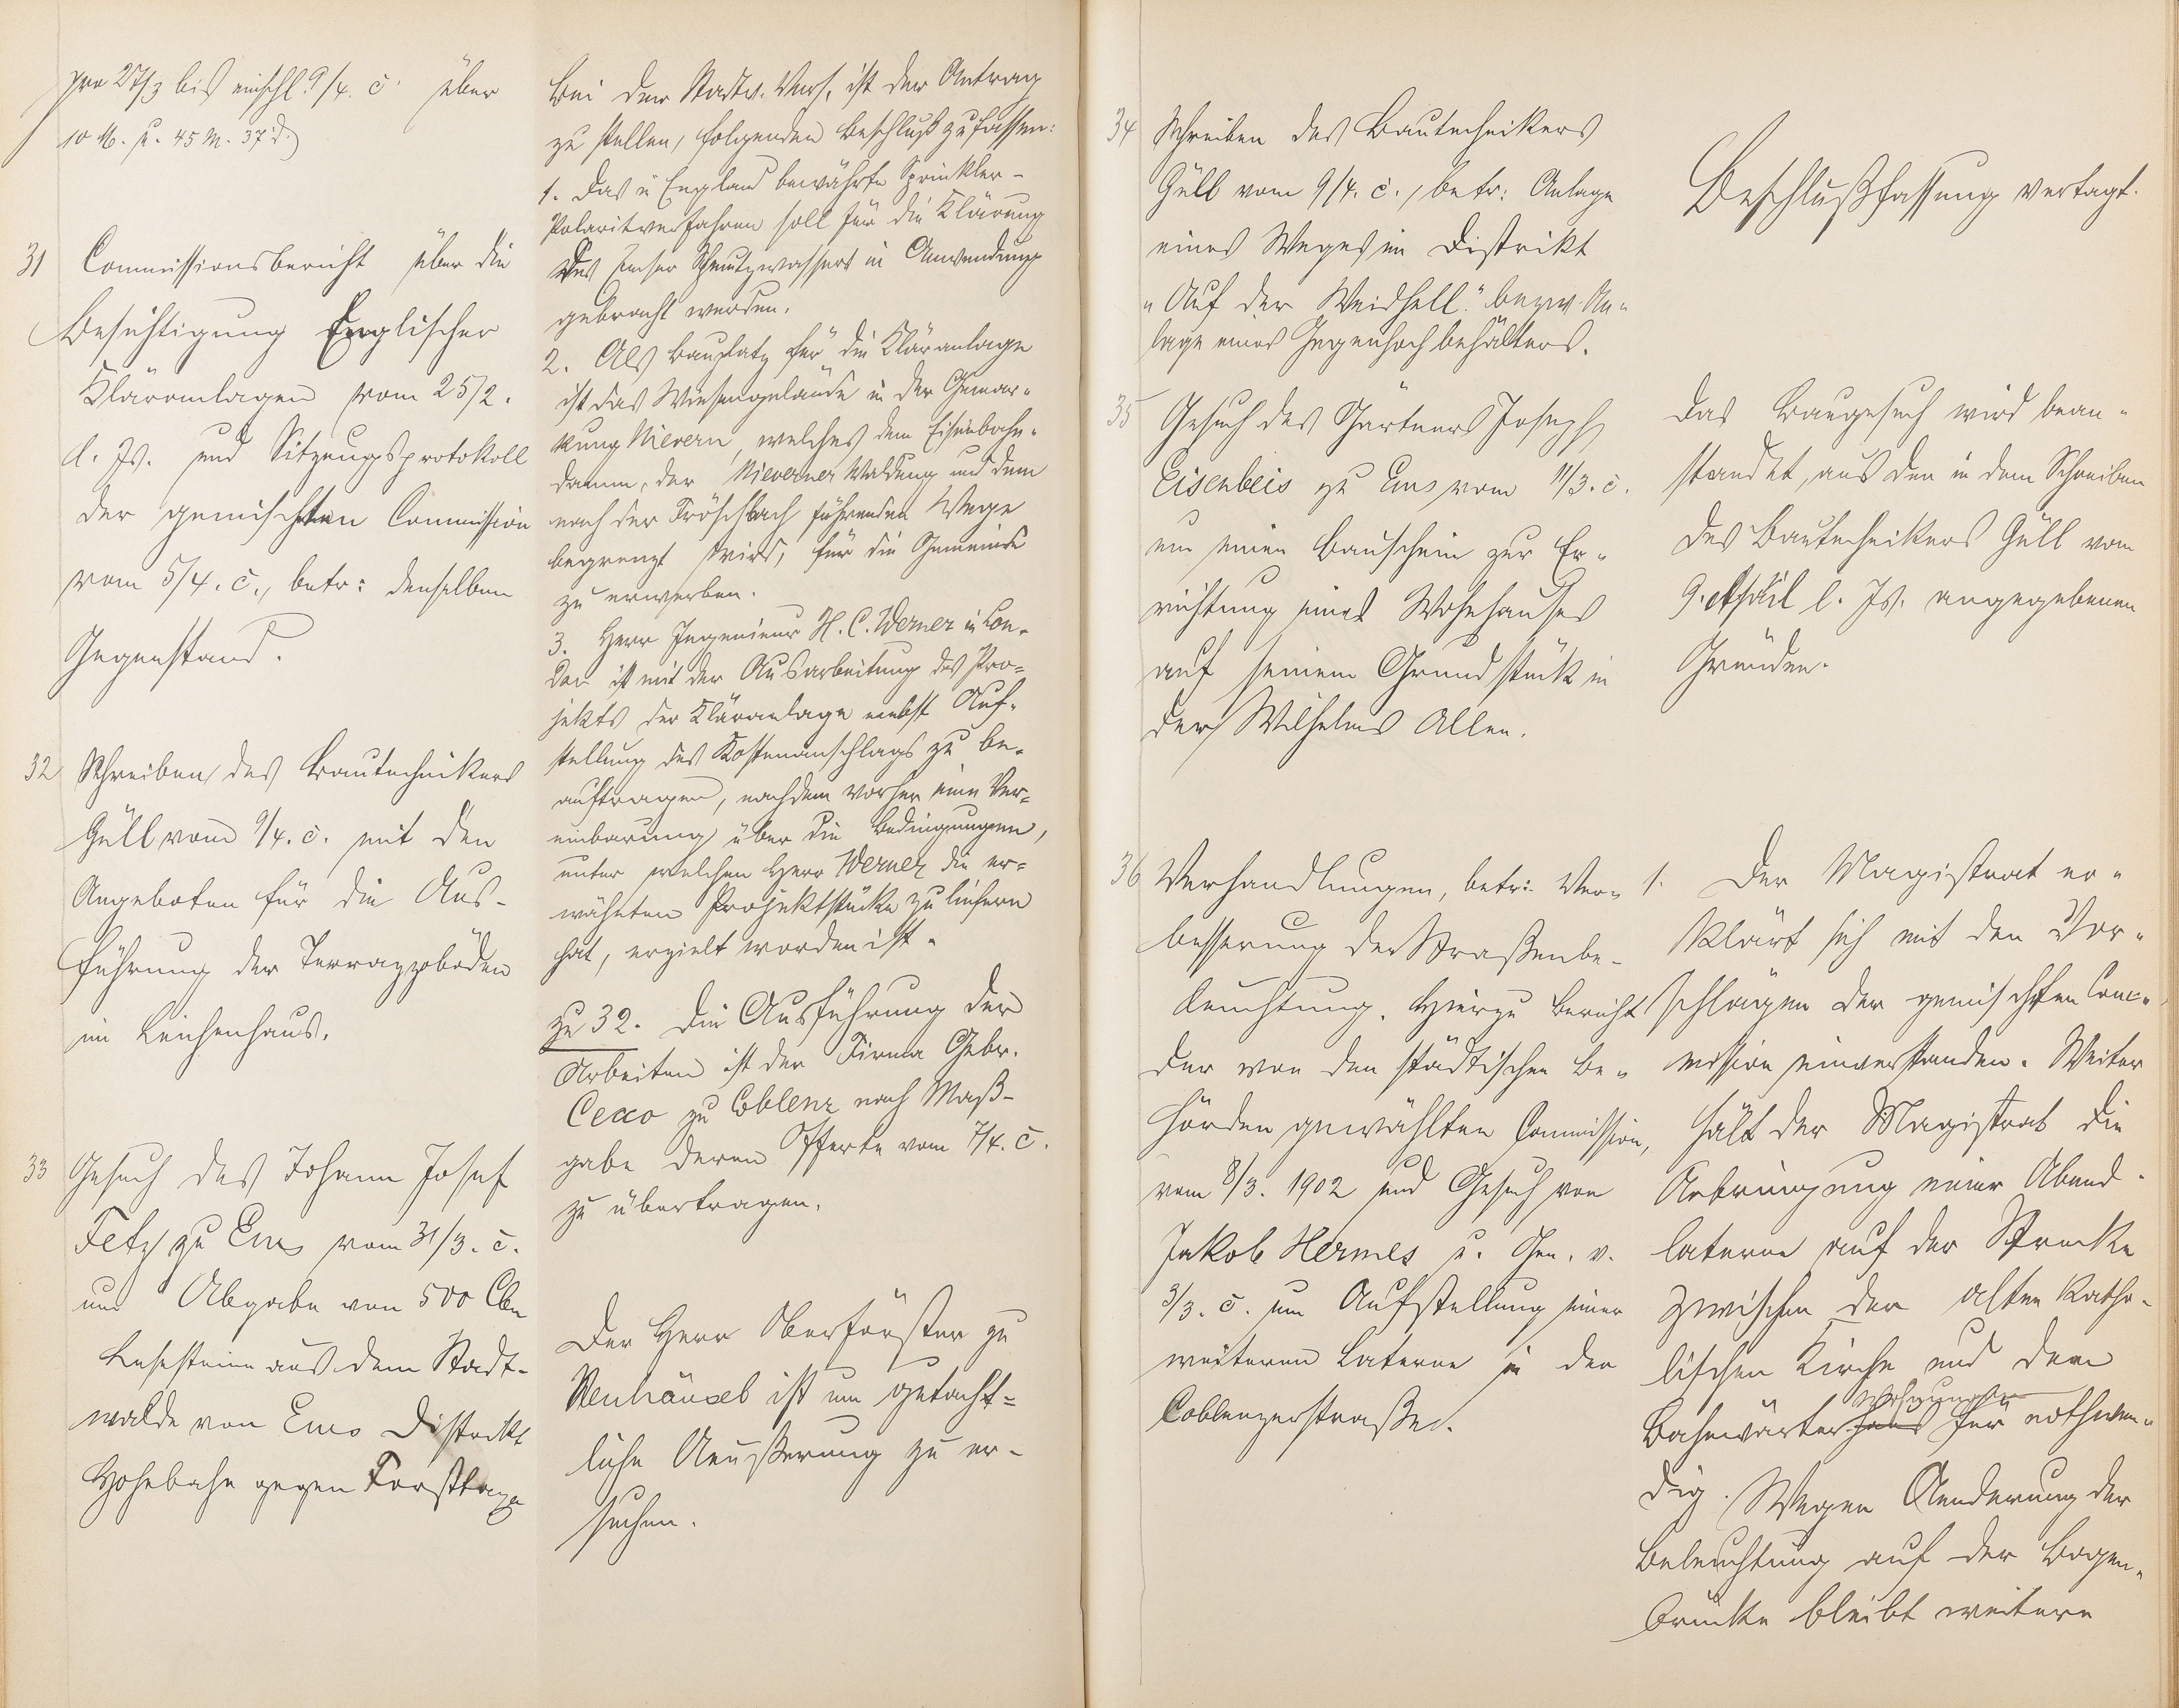 pro 27/3 bis einschl. 9/4. c. über
10 M. u. 45 M. 37 d.)
31 Commissionsbericht über die
Besichtigung Englischer
Kläranlagen vom 25/2.
d. Js. und Sitzungsprotokoll
der gemischten Commission
vom 5/4. c., betr: denselben
Gegenstand.
32 Schreiben des Bautechnikers
Güll vom 9/4. c. mit den
Angeboten für die Aus-
führung der Terrazzoböden
im Leichenhaus.
33 Gesuch des Johann Josef
Fetz zu Ems vom 31/3. c.
um Abgabe von 500 Cbm
Lesesteine aus dem Stadt-
walde von Ems Distrikt
Hohebahn gegen Forsttaxe
Bei der Stadtv. Vers. ist der Antrag
zu stellen, folgenden Beschluß zu fassen:
1. Das in England bewährte Sprinkler-
Polaritverfahren soll für die Klärung
des Emser Schmutzwassers in Anwendung
gebracht werden.
2. Als Bauplatz für die Kläranlage
ist das Wiesengelände in der Gemar-
kung Nievern, welches dem Eisenbahn-
damm, der Nieverner Waldung und dem
nach der Fröschbach führenden Wege
begrenzt wird, für die Gemeinde
zu erwerben.
3. Herr Ingenieur H. C. Werner in Lon-
don ist mit der Ausarbeitung des Pro-
jekts der Kläranlage nebst Auf-
stellung des Kostenanschlags zu be-
auftragen, nachdem vorher eine Ver-
einbarung über die Bedingungen,
unter welchen Herr Werner die er-
wähnten Projektstücke zu liefern
hat, erzielt worden ist.
zu 32. Die Ausführung der
Arbeiten ist der Firma Gebr.
Ceco zu Coblenz nach Maß-
gabe deren Offerte vom 7/4. c.
zu übertragen.
Der Herr Oberförster zu
Neuhäusel ist um gutacht-
liche Aeußerung zu er-
suchen.
34 Schreiben des Bautechnikers
Güll vom 9/4. c., betr: Anlage
eines Weges im Distrikt
"Auf der Weidhell" bezw. An-
lage eines Gegenhochbehälters.
35 Gesuch des Gärtners Joseph
Eisenbeis zu Ems vom 11/3. c.
um einen Bauschein zur Er-
richtung eines Wohnhauses
auf seinem Grundstück in
der Wilhelms Allee.
36 Verhandlungen, betr: Ver-
besserung der Straßenbe-
leuchtung. Hierzu Bericht
der von den städtischen Be-
hörden gewählten Commission,
vom 8/3. 1902 und Gesuch von
Jakob Hermes u. Gen. v.
3/3. c. um Aufstellung einer
weiteren Laterne in der
Coblenzerstraße.
Beschlußfassung vertagt.
Das Baugesuch wird bean-
standet, aus den in dem Schreiben
des Bautechnikers Güll vom
9. April l. Js. angegebenen
Gründen.
1. Der Magistrat er-
klärt sich mit den Vor-
schlägen der gemischten Com-
mission einverstanden. Weiter
hält der Magistrat die
Anbringung einer Abend-
laterne auf der Strecke
zwischen der alten Katho-
lischen Kirche und dem
Bahnwärter haus für nothwen-
dig. Wegen Aenderung der
Beleuchtung auf der Bogen-
brücke bleibt weitere